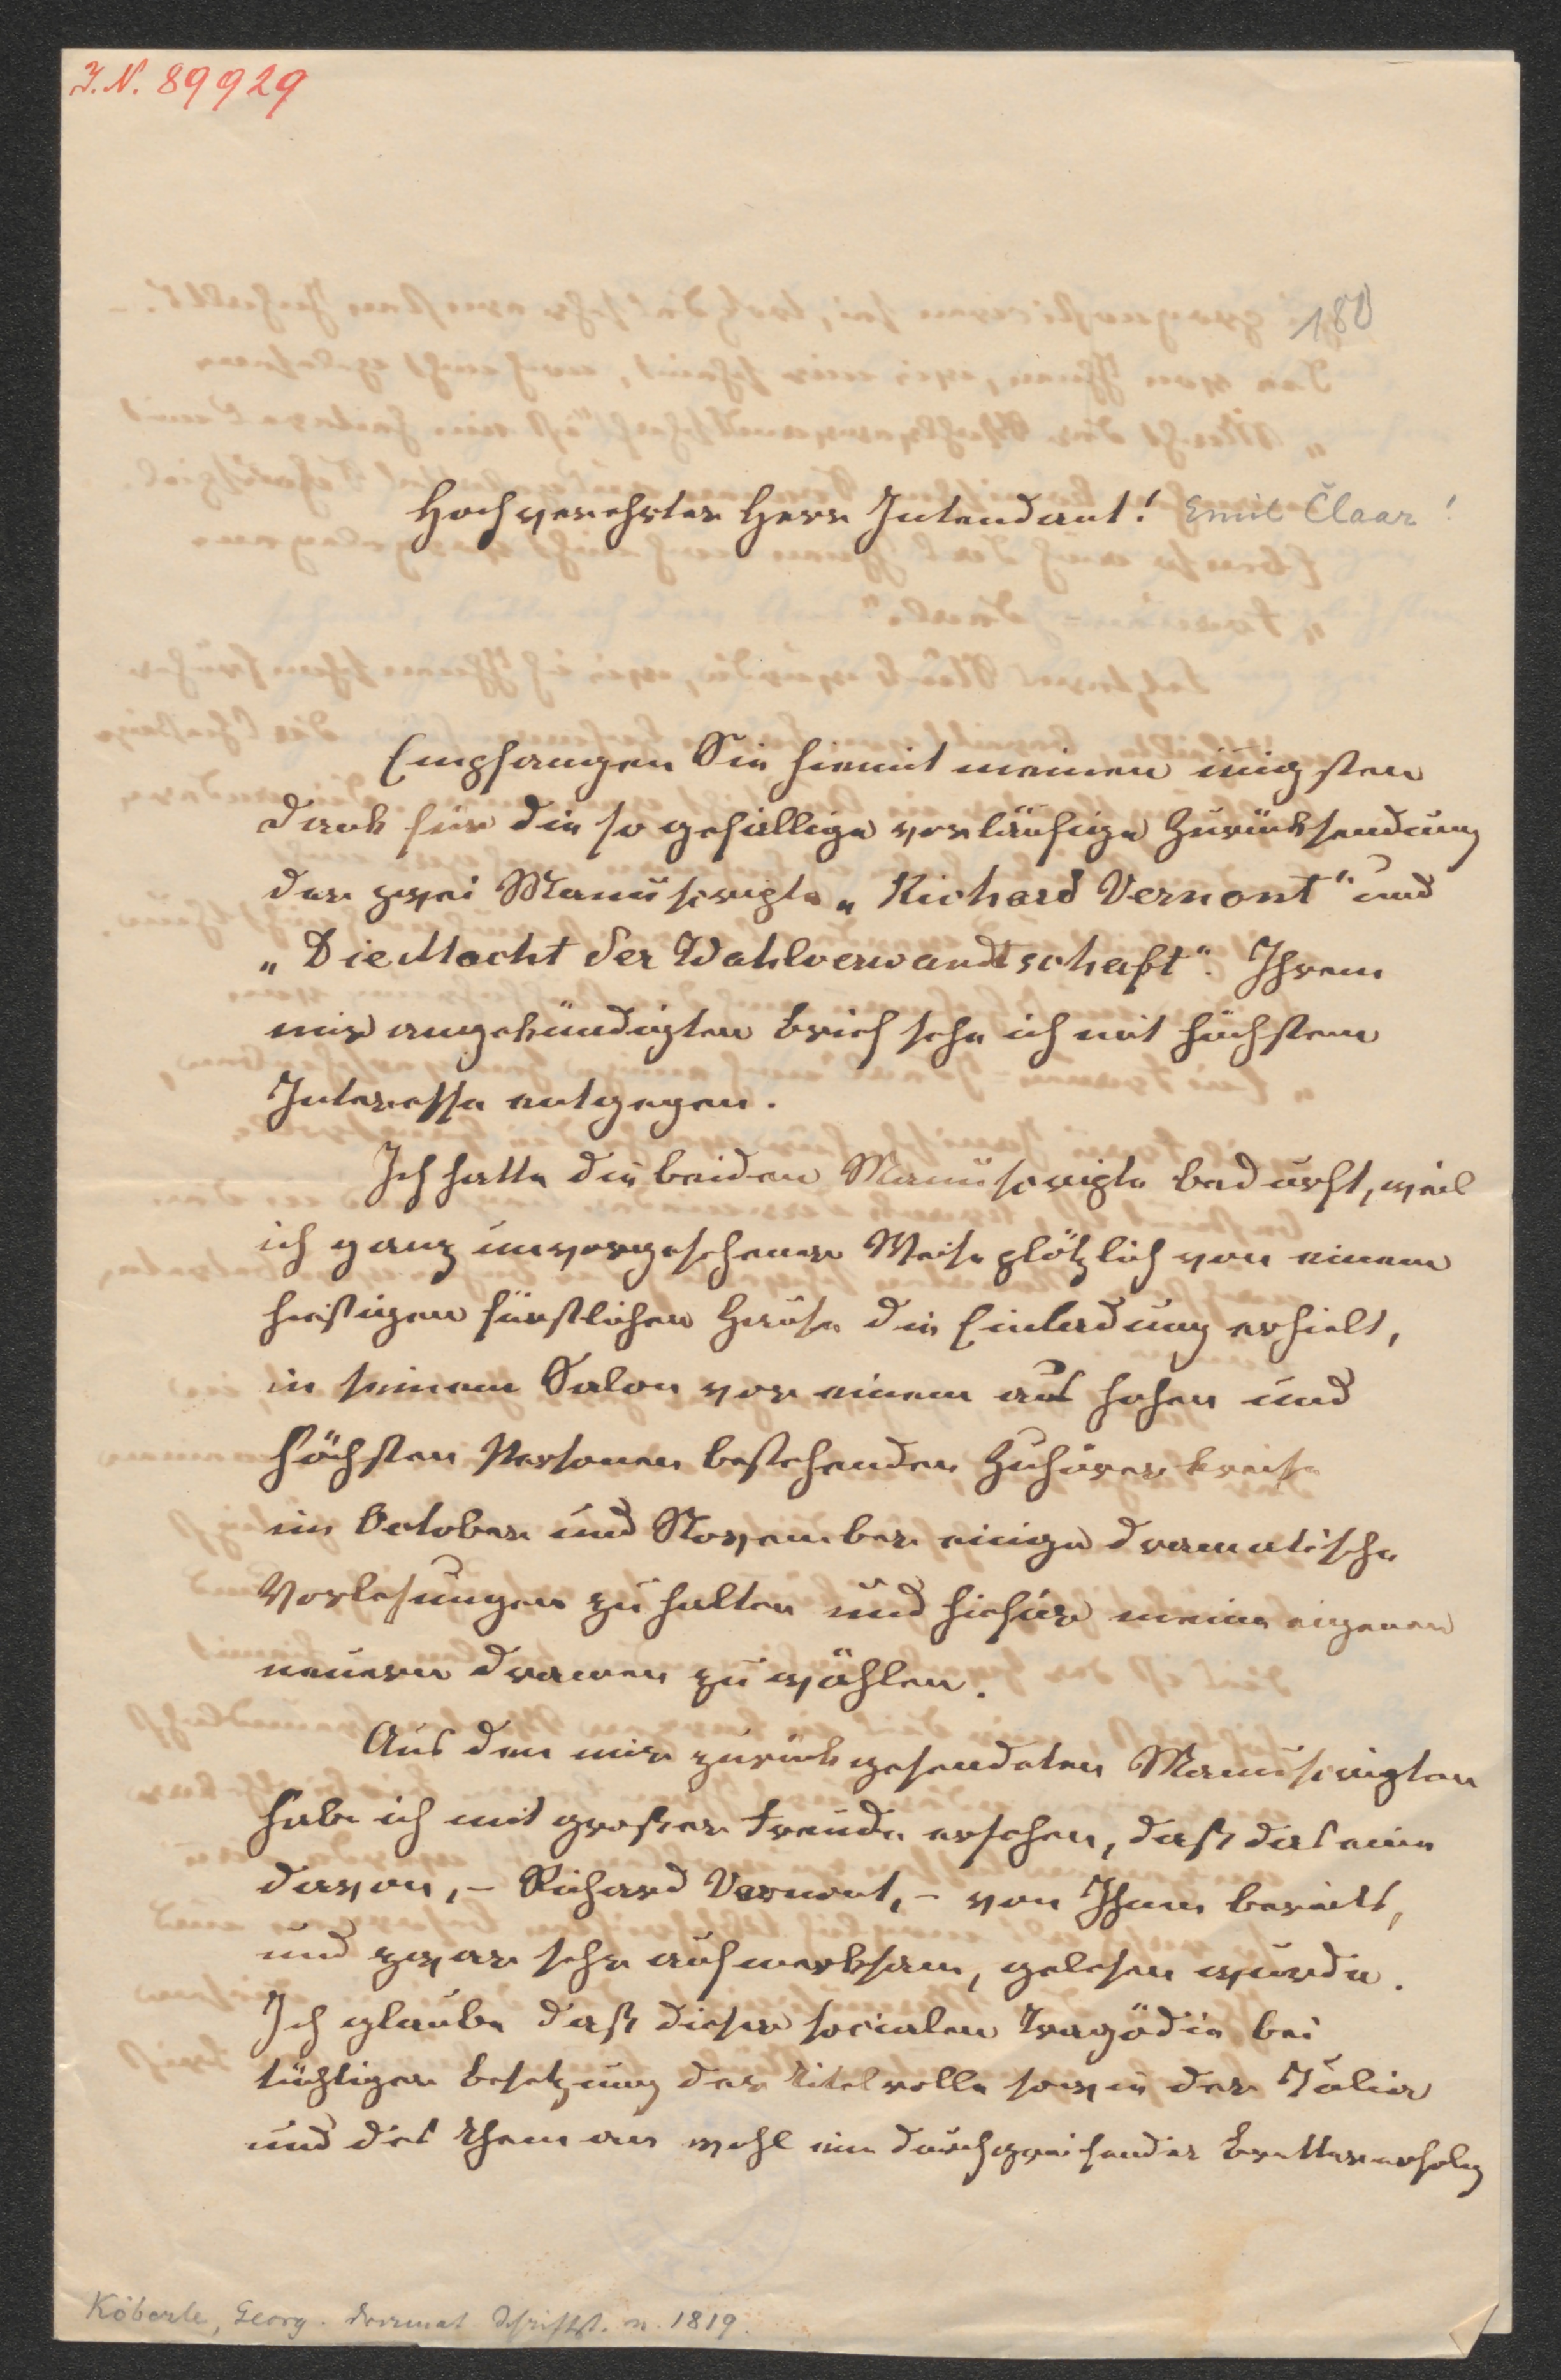 I. N. 89929
180
Hochverehrter Herr Intendant! Emil Claar!
Empfangen Sie hiemit meinen innigsten
Dank für die so gefällige vorläufige Zurücksendung
der zwei Manuscripte „Richard Vernont" und
„Die Macht der Wahlverwandtschaft". Ihrem
mir angekündigten Brief sehe ich mit höchstem
Interesse entgegen.
Ich hatte die beiden Manuscripte bedurft, weil
ich ganz unvorgesehener Weise plötzlich von einem
hiesigen fürstlichen Hause die Einladung erhielt,
in seinem Salon vor einem aus hohen und
höchsten Personen bestehenden Zuhörerkreise
im October und November einige dramatische
Vorlesungen zu halten und hiefür meine eigenen
neuern Dramen zu wählen.
Aus den mir zurückgesendeten Manuscripten
habe ich mit großer Freude ersehen, daß das eine
davon, – Richard Vernont, – von Ihnen bereits,
und zwar sehr aufmerksam, gelesen wurde.
Ich glaube daß dieser socialen Tragödie bei
tüchtiger Besetzung der Titelrolle sowie der Julia
und des wohl ein durchgreifender Brettererfolg
Köberle, Georg. dramat. Schriftst. n. 1819.